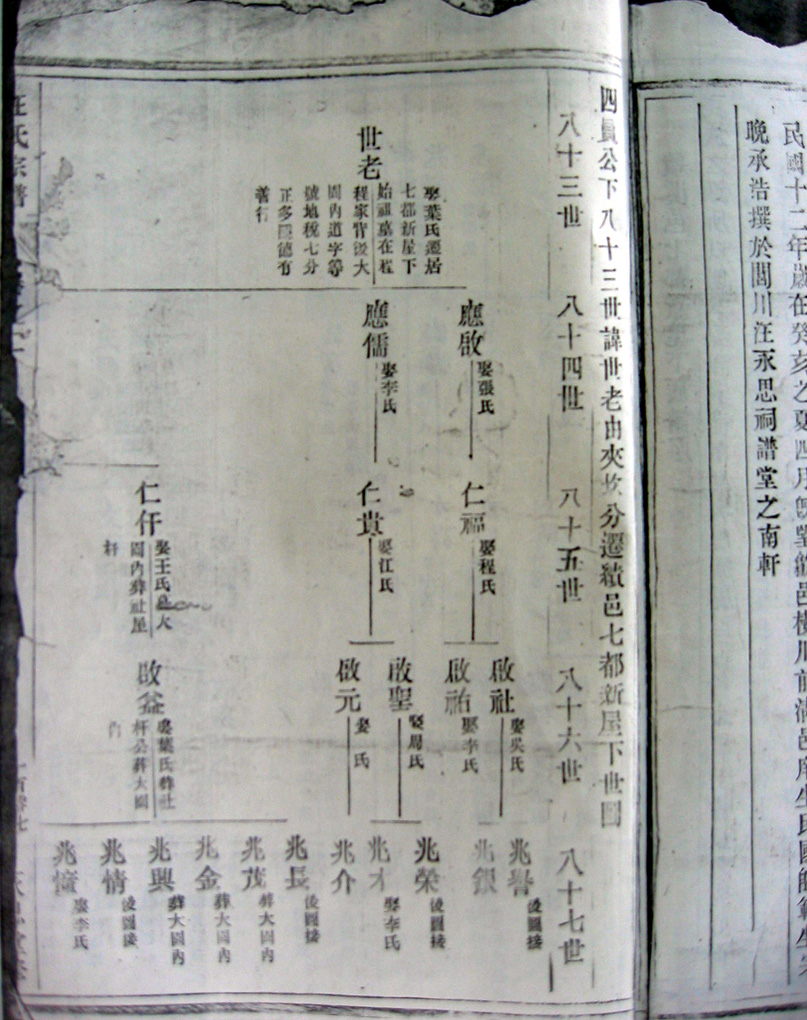 民國十二年歲在癸亥之夏四月
晚承浩撰於閭川汪永思祠譜堂之南軒
四員公下八十三世諱世老由夾坎分遷績邑七都新屋下世圖
八十三世
八十四世
八十五世
八十六世
八十七世
世老
娶葉氏遷居
七都新屋下
始祖墓在程
程家背後大
園內道字等
號地稅七分
正多隱德有
善行
應啟
娶張氏
應儒
娶李氏
仁福
娶程氏
仁貴
娶江氏
仁仟
娶王氏
園內葬社屋
啟社
娶吳氏
啟祐
娶李氏
啟聖
娶周氏
啟元
娶 氏
啟益
娶葉氏葬社
杆公葬大園
內
兆譽
後圖接
兆銀
兆榮
後圖接
兆才
娶李氏
兆介
兆長
後圖接
兆茂
葬大園內
兆金
葬大園內
兆興
葬大園內
兆情
後圖接
兆憧
娶李氏
汪氏宗譜